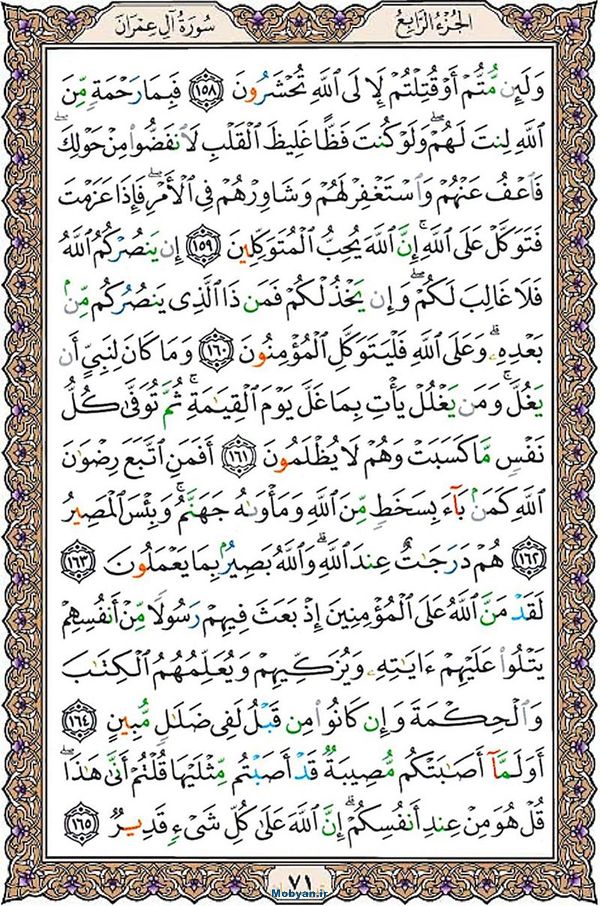 الجُزءُ الرَّابِعُ
سُورَةُ آلِ عِمۡرَانَ
وَلَئِن مُّتُّمۡ أَوۡ قُتِلۡتُمۡ لَإِلَى ٱللَّهِ تُحۡشَرُونَ ١٥٨ فَبِمَا رَحۡمَةٖ مِّنَ
ٱللَّهِ لِنتَ لَهُمۡۖ وَلَوۡ كُنتَ فَظًّا غَلِيظَ ٱلۡقَلۡبِ لَٱنفَضُّواْ مِنۡ حَوۡلِكَۖ
فَٱعۡفُ عَنۡهُمۡ وَٱسۡتَغۡفِرۡ لَهُمۡ وَشَاوِرۡهُمۡ فِي ٱلۡأَمۡرِۖ فَإِذَا عَزَمۡتَ
فَتَوَكَّلۡ عَلَى ٱللَّهِۚ إِنَّ ٱللَّهَ يُحِبُّ ٱلۡمُتَوَكِّلِينَ ١٥٩ إِن يَنصُرۡكُمُ ٱللَّهُ
فَلَا غَالِبَ لَكُمۡۖ وَإِن يَخۡذُلۡكُمۡ فَمَن ذَا ٱلَّذِي يَنصُرُكُم مِّنۢ
بَعۡدِهِۦۗ وَعَلَى ٱللَّهِ فَلۡيَتَوَكَّلِ ٱلۡمُؤۡمِنُونَ ١٦٠ وَمَا كَانَ لِنَبِيٍّ أَن
يَغُلَّۚ وَمَن يَغۡلُلۡ يَأۡتِ بِمَا غَلَّ يَوۡمَ ٱلۡقِيَٰمَةِۚ ثُمَّ تُوَفَّىٰ كُلُّ
نَفۡسٖ مَّا كَسَبَتۡ وَهُمۡ لَا يُظۡلَمُونَ ١٦١ أَفَمَنِ ٱتَّبَعَ رِضۡوَٰنَ
ٱللَّهِ كَمَنۢ بَآءَ بِسَخَطٖ مِّنَ ٱللَّهِ وَمَأۡوَىٰهُ جَهَنَّمُۖ وَبِئۡسَ ٱلۡمَصِيرُ
١٦٢ هُمۡ دَرَجَٰتٌ عِندَ ٱللَّهِۗ وَٱللَّهُ بَصِيرُۢ بِمَا يَعۡمَلُونَ ١٦٣
لَقَدۡ مَنَّ ٱللَّهُ عَلَى ٱلۡمُؤۡمِنِينَ إِذۡ بَعَثَ فِيهِمۡ رَسُولٗا مِّنۡ أَنفُسِهِمۡ
يَتۡلُواْ عَلَيۡهِمۡ ءَايَٰتِهِۦ وَيُزَكِّيهِمۡ وَيُعَلِّمُهُمُ ٱلۡكِتَٰبَ
وَٱلۡحِكۡمَةَ وَإِن كَانُواْ مِن قَبۡلُ لَفِي ضَلَٰلٖ مُّبِينٍ ١٦٤
أَوَلَمَّآ أَصَٰبَتۡكُم مُّصِيبَةٞ قَدۡ أَصَبۡتُم مِّثۡلَيۡهَا قُلۡتُمۡ أَنَّىٰ هَٰذَاۖ
قُلۡ هُوَ مِنۡ عِندِ أَنفُسِكُمۡۗ إِنَّ ٱللَّهَ عَلَىٰ كُلِّ شَيۡءٖ قَدِيرٞ ١٦٥
٧١
Mobyan.ir